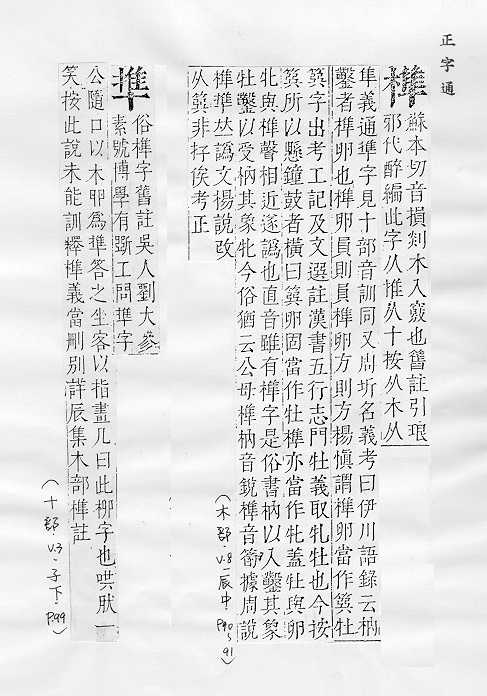 正字通
榫
蘇本切音損剡木入竅也舊註引琅
邪代醉編此字从推从十按从木从
隼義通準字見十部音訓同又周圻名義考曰伊川語錄云枘
鑿者榫卵也榫卵員則員榫卵方則方楊慎謂榫卵當作簨牡
簨字出考工記及文選註漢書五行志門牡義取牝牡也今按
簨所以懸鐘鼓者橫曰簨卵固當作牡榫亦當作牝蓋牡與卵
牝與榫聲相近遂譌也直音雖有榫字是俗書枘以入鑿其象
牡鑿以受枘其象牝今俗猶云公母榫枘音銳榫音筍據周說
榫準𠀤譌文楊說改
从簨非㧱俟考正
準
俗榫字舊註吳人劉大參
素號博學有斲工問準字
公隨口以木卯爲準答之坐客以指畫几曰此楖字也哄狀一
笑按此說未能訓繹榫義當刪別詳辰集木部榫註
(木部·V.8-辰中·P.90~91)
(十部·V.3·子下·P.99)